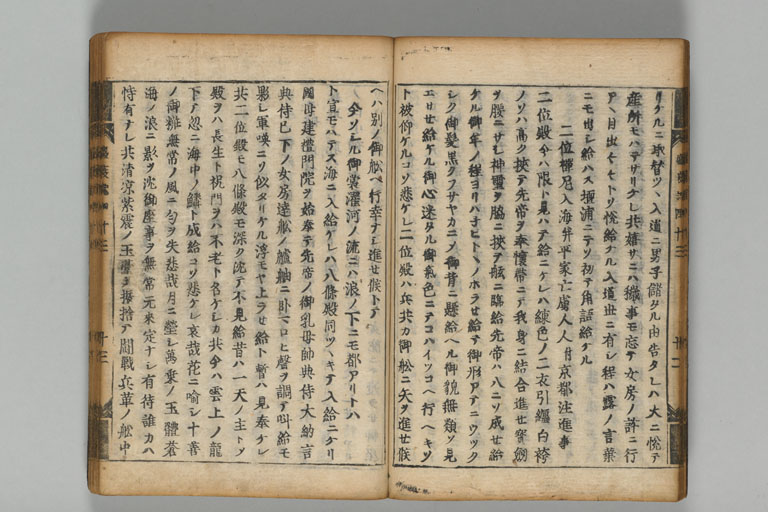 リケルニ取替ツ入道ニ男子儲タル由告タレハ大ニ悦テ
産所モハテサリケレ共嬉サニハ穢事モ忘テ女房ノ許ニ行
アハ目出々々トソ悦給ケル入道世ニ有シ程ハ露ノ言葉
ニモ出シ給ハス壇浦ニテソ初テ角語給ケル
二位禅尼入海并平家亡虜人人付京都注進事
二位殿今ハ限ト見ハテ給ニケレハ練色ノ二衣引纏白袴
ノソハ高ク挟テ先帝ヲ奉懐帯ニテ我身ニ結合進セ宝剣
ヲ腰ニサシ神璽ヲ脇ニ挟テ舷ニ臨給先帝ハ八ニソ成セ給
ケル御年ノ程ヨリハナヒトヽノホラセ給テ御形アテニウツク
シク御髪黒クフサヤカニシテ御背ニ懸給ヘル御貌無類ソ見
エサセ給ケル御心迷タル御気色ニテコハイツコヘ行ヘキソ
ト被仰ケルコソ悲ケレ二位殿ハ兵共カ御舩ニ矢ヲ進セ候
ヘハ別ノ御舩ヘ行幸ナシ進セ候トテ
今ソシル御裳濯河ノ流ニハ浪ノ下ニモ都アリトハ
ト宣モハテス海ニ入給ケレハ八條殿同ツヽキテ入給ニケリ
國母建禮門院ヲ始奉テ先帝ノ御乳母帥典侍大納言
典侍已下ノ女房達舩ノ艫舳ニ臥マロヒ聲ヲ調テ叫給モ
影シ軍喚ニソ似タリケル浮モヤ上ラセ給ト暫ハ見奉ケレ
共二位殿モ八條殿モ深ク沈テ不見給昔ハ一天ノ主トシテ
殿ヲハ長生ト祝門ヲハ不老ト名ケシカ共今ハ雲上ノ龍
下テ忽ニ海中ノ鱗ト成給コソ悲ケレ哀哉花ニ喩シ十善
ノ御粧無常ノ風ニ匂ヲ失悲哉月ニ瑩シ萬乗ノ玉體蒼
海ノ浪ニ影ヲ沈御座事ヲ無常元来定ナシ有待誰カハ
恃有ナレ共清凉紫震ノ玉臺ヲ振捨テ闘戰兵革ノ舩中